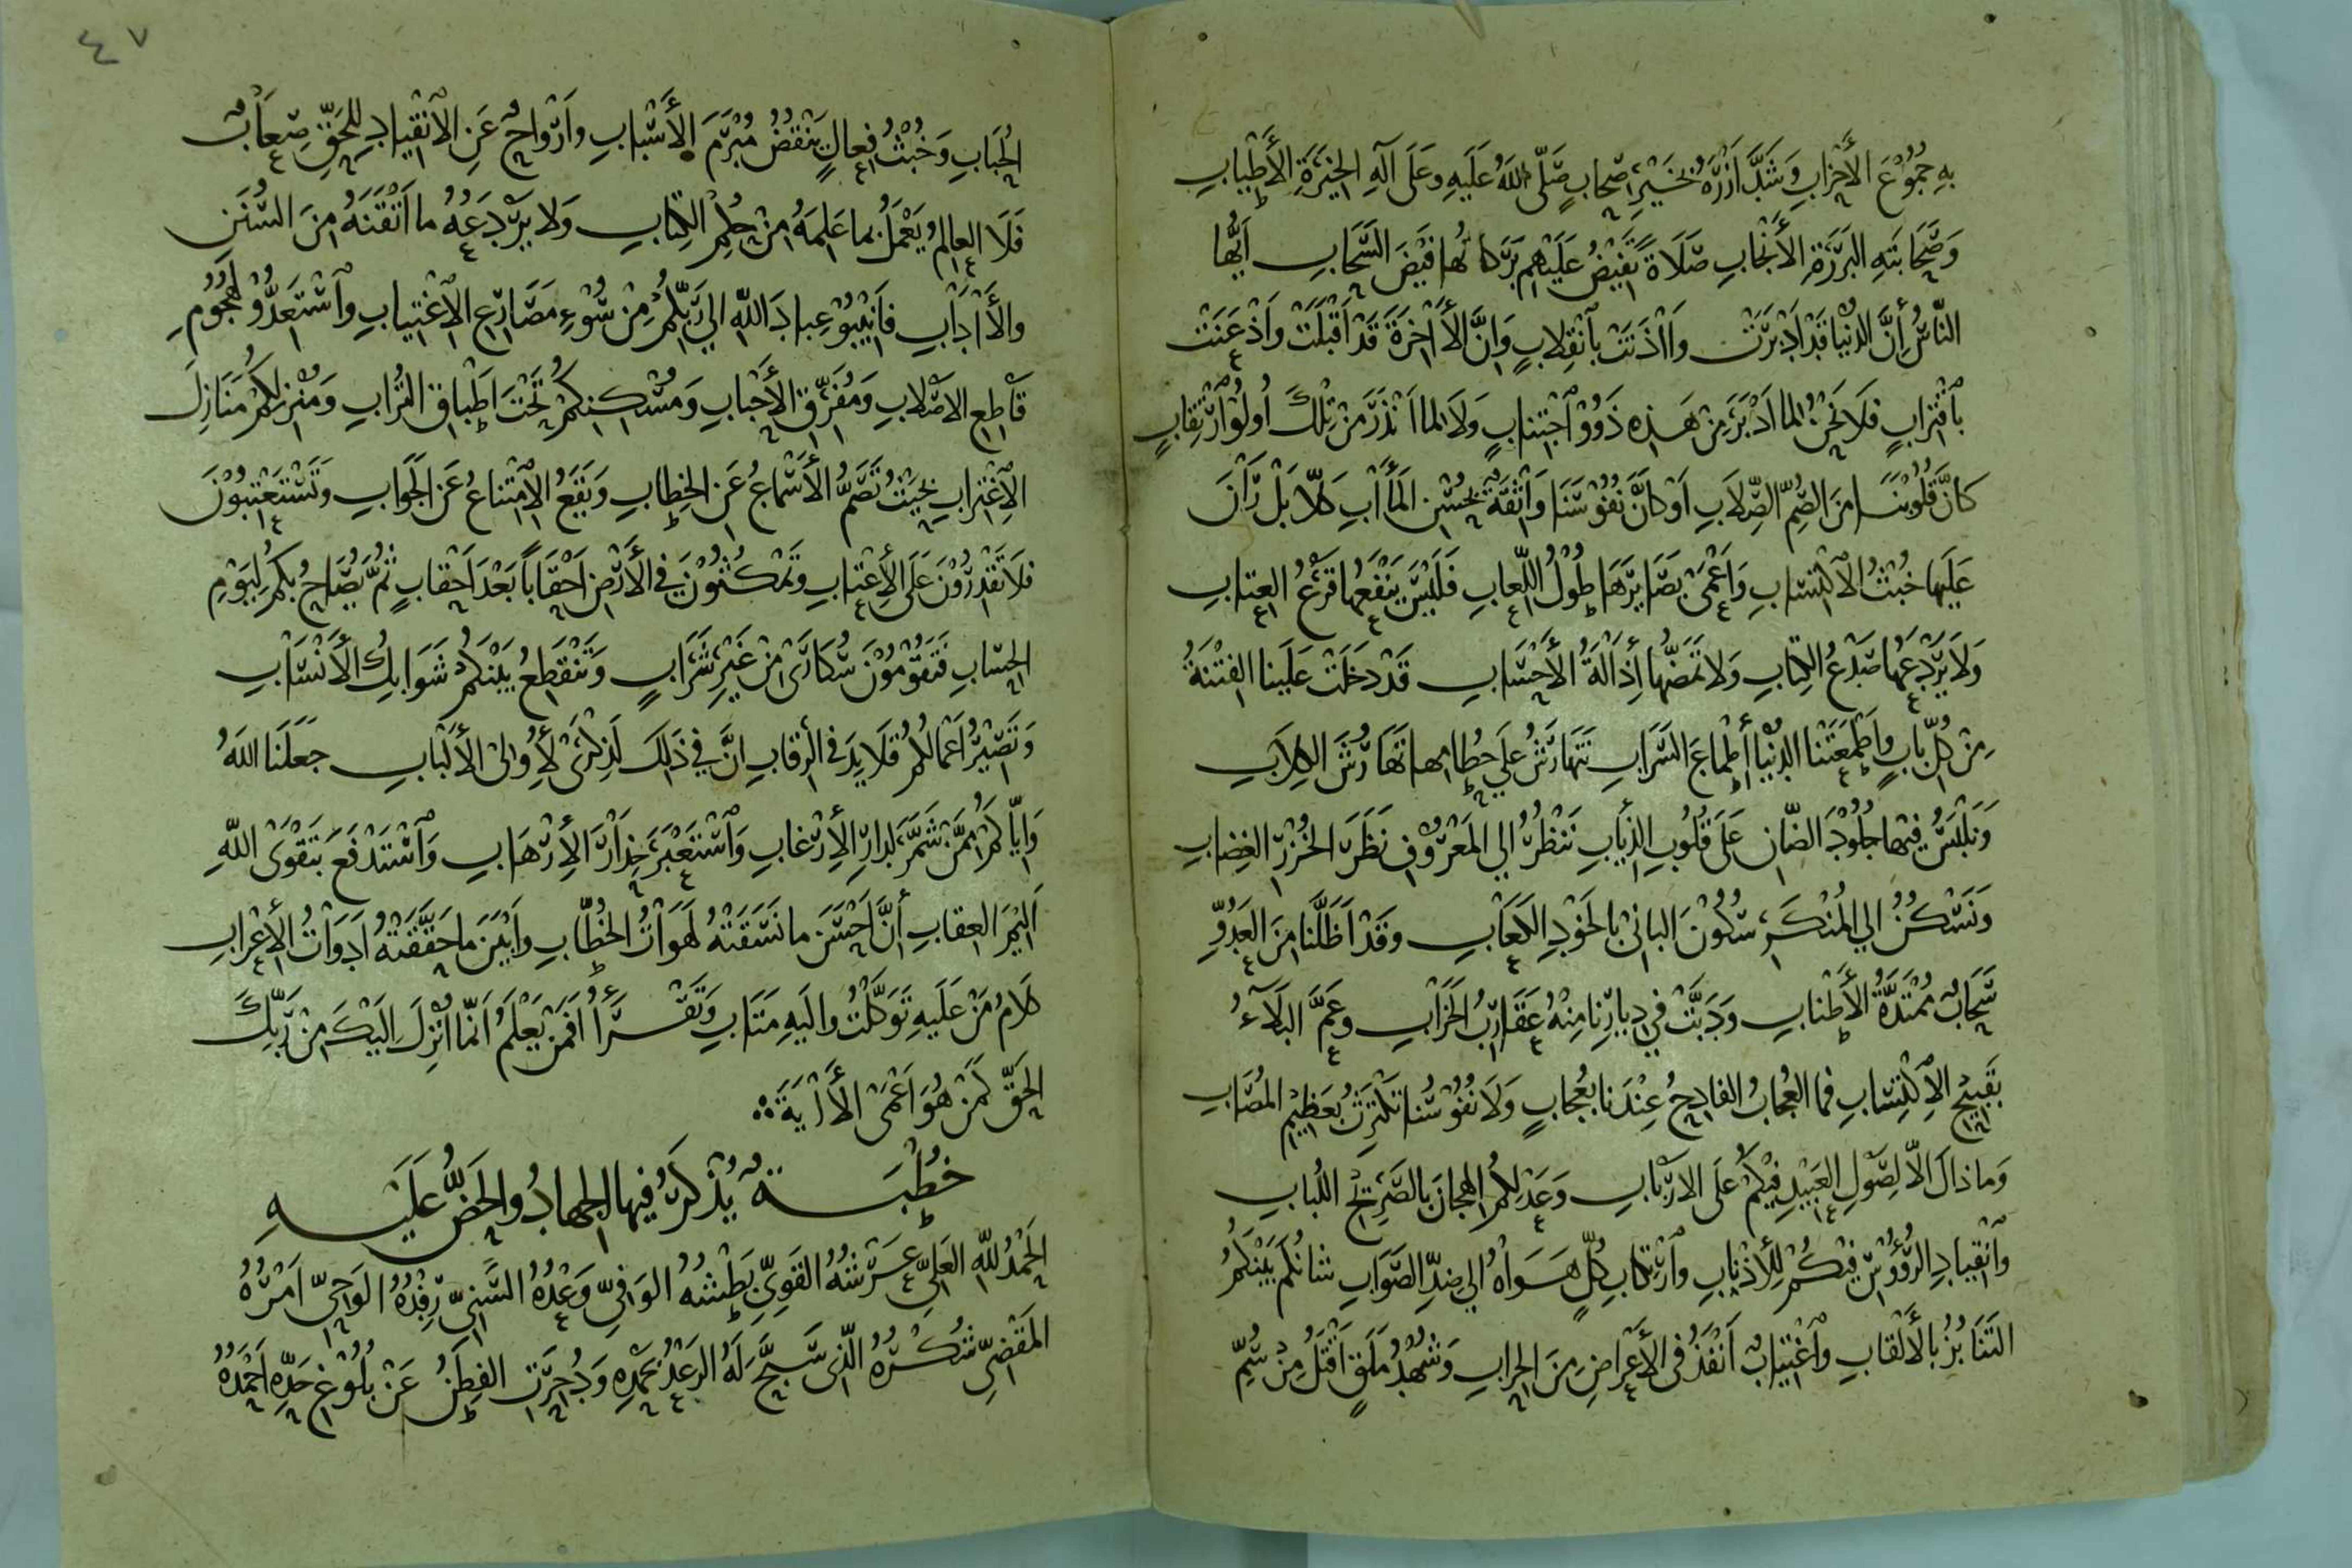 بِهِ جُمُوْعَ الأَحْزابِ وَشَدَّ اَزْرَهُ بِخَيْرِ اَصْحابٍ صَلّى اللهُ عَلَيهِ وعَلَى آلِهِ الخِيَرَةِ الأَطْيابِ
وَصَحَابَتِهِ البَرَرَةِ الأَنْجَابِ صَلَاةً تَفِيْضُ عَلَيْهِم بَرَكاتُها فَيْضَ السَّحَابِ اَيُّها
النّاسُ إنَّ الدُنْيا قَدْ اَدْبَرَتْ وَاٰذَنَتْ بِاَنْقِلابٍ وَاِنَّ الأٰخِرَةَ قَدْ اَقْبَلَتْ وَاَذْعَنَتْ
بِاَقْتِرابٍ فَلَا نَحْنُ لِما اَدْبَرَ مِنْ هَذِهِ ذَوُوْ اَجْتِنابٍ وَلَا لِما اَنْذَرَ مِنْ تِلْكَ أُولُوْ ارْتِقابٍ
كَاَنَّ قُلُوْبَنَا مِنَ الصُّمِّ الصِّلَابِ اَوْ كاَنَّ نُفُوْسَنَا وَاثِقَةٌ بِحُسْنِ المَأٰبِ كَلّا بَلْ رَانَ
عَلَيها خُبْثُ الاكْتِسَابِ وَاَعْمَىْ بَصَايِرَهَا طُوْلُ اللِّعابِ فَلَيْسَ يَنْفَعُها قَرْعُ العِتابِ
وَلَا يَرْدَعُها صَدْعُ الكِتابِ وَلا تَمَضُّها إذَالَةُ الأَحْسَابِ قَدْ دَخَلَتْ عَلَينا الفِتْنَةُ
مِنْ كُلِّ بابٍ واَطْمَعَتْنا الدُنْيا أطْماعَ السَّرَابِ نَتَهارَشُ عَلَى حُطامِها تَهَارُشَ الكِلَابِ
وَنَلْبَسُ فِيْها جُلُوْدَ الضَّانِ عَلَى قُلُوْبِ الذِيابِ نَنْظُرُ اِلَى المَعْرُوْفِ نَظَرَ الخُزْرِ الغِضابِ
وَنَسْكُنُ اِلَى المُنْكَرِ سُكُوْنَ البانِىْ بِالخَوْدِ الكَعَابِ وقَدْ اَظَلَّنا مِنَ العَدُوِّ
سَحَابٌ مُمْتَدَّةُ الأَطْنابِ وَدَبَّتْ فِي دِيارِنا مِنْهُ عَقَارِبُ الخَرَابِ وعَمَّ البَلَآءُ
بِقَبِيْحِ الاِكْتِسَابِ فما العُجابُ الفادِحُ عِنْدَنا بِعُجابٍ وَلَا نُفُوْسُنا تَكْتَرِثُ بِعَظِيْمِ المُصَابِ
وَما ذاكَ اِلّا لِصَوْلِ العَبِيْدِ فِيْكُم عَلَى الاَرْبابِ وَعَدْلِكُمُ الهِجانَ بِالصَّرِيْحِ اللُبابِ
وَاَنْقِيادِ الرُؤُوْسِ فِيْكُمْ لِلأَذْنابِ وَاَرْتِكابِ كُلٍّ هَوَاهُ اِلَى ضِدِّ الصَّوَابِ شانُكُم بَيْنَكُمُ
التَنَابُزُ بِالأَلْقابِ وَاَغْتِيَابٌ اَنْفَذُ فى الأَعْرَاضِ مِنَ الحِرابِ وَشُهْدُ مَلَقٍ اَقْتَلُ مِنْ سُمِّ
الحُبَابِ وَخُبْثُ فِعالٍ يَنْقُضُ مُبْرَمَ الأَسْبابِ واَرْوَاحٌ عَنِ الاَنْقِيادِ لِلحَقِّ صِعَابٌ
فَلَا العالِمُ يَعْمَلُ بِما عَلِمَهُ مِنْ حُكْمِ الكِتابِ وَلا يَرْدَعُهُ ما اَتْقَنَهُ مِنَ السُنَنِ
والأٰدَابِ فَاَنِيْبُوْ عِبادَ اللهِ اِلى رَبِّكُمْ مِنْ سُوْءِ مَصَارِعِ الاَغْتِيابِ واَسْتَعِدُّوْ لِهُجُوْمِ
قَاطِعِ الاَصْلابِ وَمُفَرِّقِ الأَحْبابِ وَمُسْكِنِكُمْ تَحْتَ اَطْباقِ التُرابِ وَمُنْزِلِكُمْ مَنَازِلَ
الاِغْتِرابِ بِحَيْثُ تَصَمُّ الأَسْماعُ عَنِ الخِطابِ وَيَقَعُ الاِمْتِناعُ عَنِ الجَوابِ وتَسْتَعْتِبُوْنَ
فَلا تَقْدِرُوْنَ عَلَى الأِعْتابِ وتَمْكُثُوْنَ فِي الأَرْضِ اَحْقاباً بَعْدَ اَحْقابٍ ثُمَّ يُصَاحُ بِكُمْ لِيَوْمِ
الحِسَابِ فَتَقُوْمُوْنَ سُكَارَىْ مِنْ غَيْرِ شَرَابٍ وَتَنْقَطِعُ بَيْنَكُمْ شَوَابِكُ الأَنْسَابِ
وَتَصِيْرُ اَعْمالُكُمْ قَلَايِدَ فِي الرِقابِ اِنَّ فِي ذَلِكَ لَذِكْرَىْ لأُوْلِى الأَلْبابِ جعَلَنَا اللهُ
وَاِيّاكُمْ مِمَّنْ شَمَّرَ لِدارِ الأِرْغابِ وَاَسْتَعْبَرَ حِذَارَ الأِرْهابِ وَاَسْتَدْفَعَ بِتَقْوَىْ اللهِ
اَلِيْمَ العِقابِ أنَّ اَحْسَنَ ما نَسَّقَتْهُ لَهَوَاتُ الخُطّابِ واَبْيَنَ ما حَقَّقَتْهُ اَدَوَاتُ الأِعْرابِ
كَلَامُ مَنْ عَلَيهِ تَوَكَّلْتُ واِلَيهِ مَتَابِ وَتَقْرَأُ اَفَمَنْ يَعْلَمُ اَنَّما اُنْزِلَ اِلَيْكَ مِنْ رَبِّكَ
الحَقُّ كَمَنْ هُوَ اَعْمَىْ الأٰيَةَ
خُطْبَةٌ يُذْكَرُ فِيها الجِهادُ والحَضُّ عَلَيْهِ
الحَمْدُ للهِ العَلِيِّ عَرْشُهُ القَوِيِّ بَطْشُهُ الوَافِيِّ وَعْدُهُ السَّنِيِّ رِفْدُهُ الوَاجِىِّ اَمْرُهُ
المَقْضِيِّ شُكْرُهُ الّذِى سَبَّحَ لَهُ الرَعْدُ بِحَمْدِهِ وَدُحِرَتِ الفِطَنُ عَنْ بُلُوْغِ حَدِّهِ اَحْمَدُهُ
٤٧